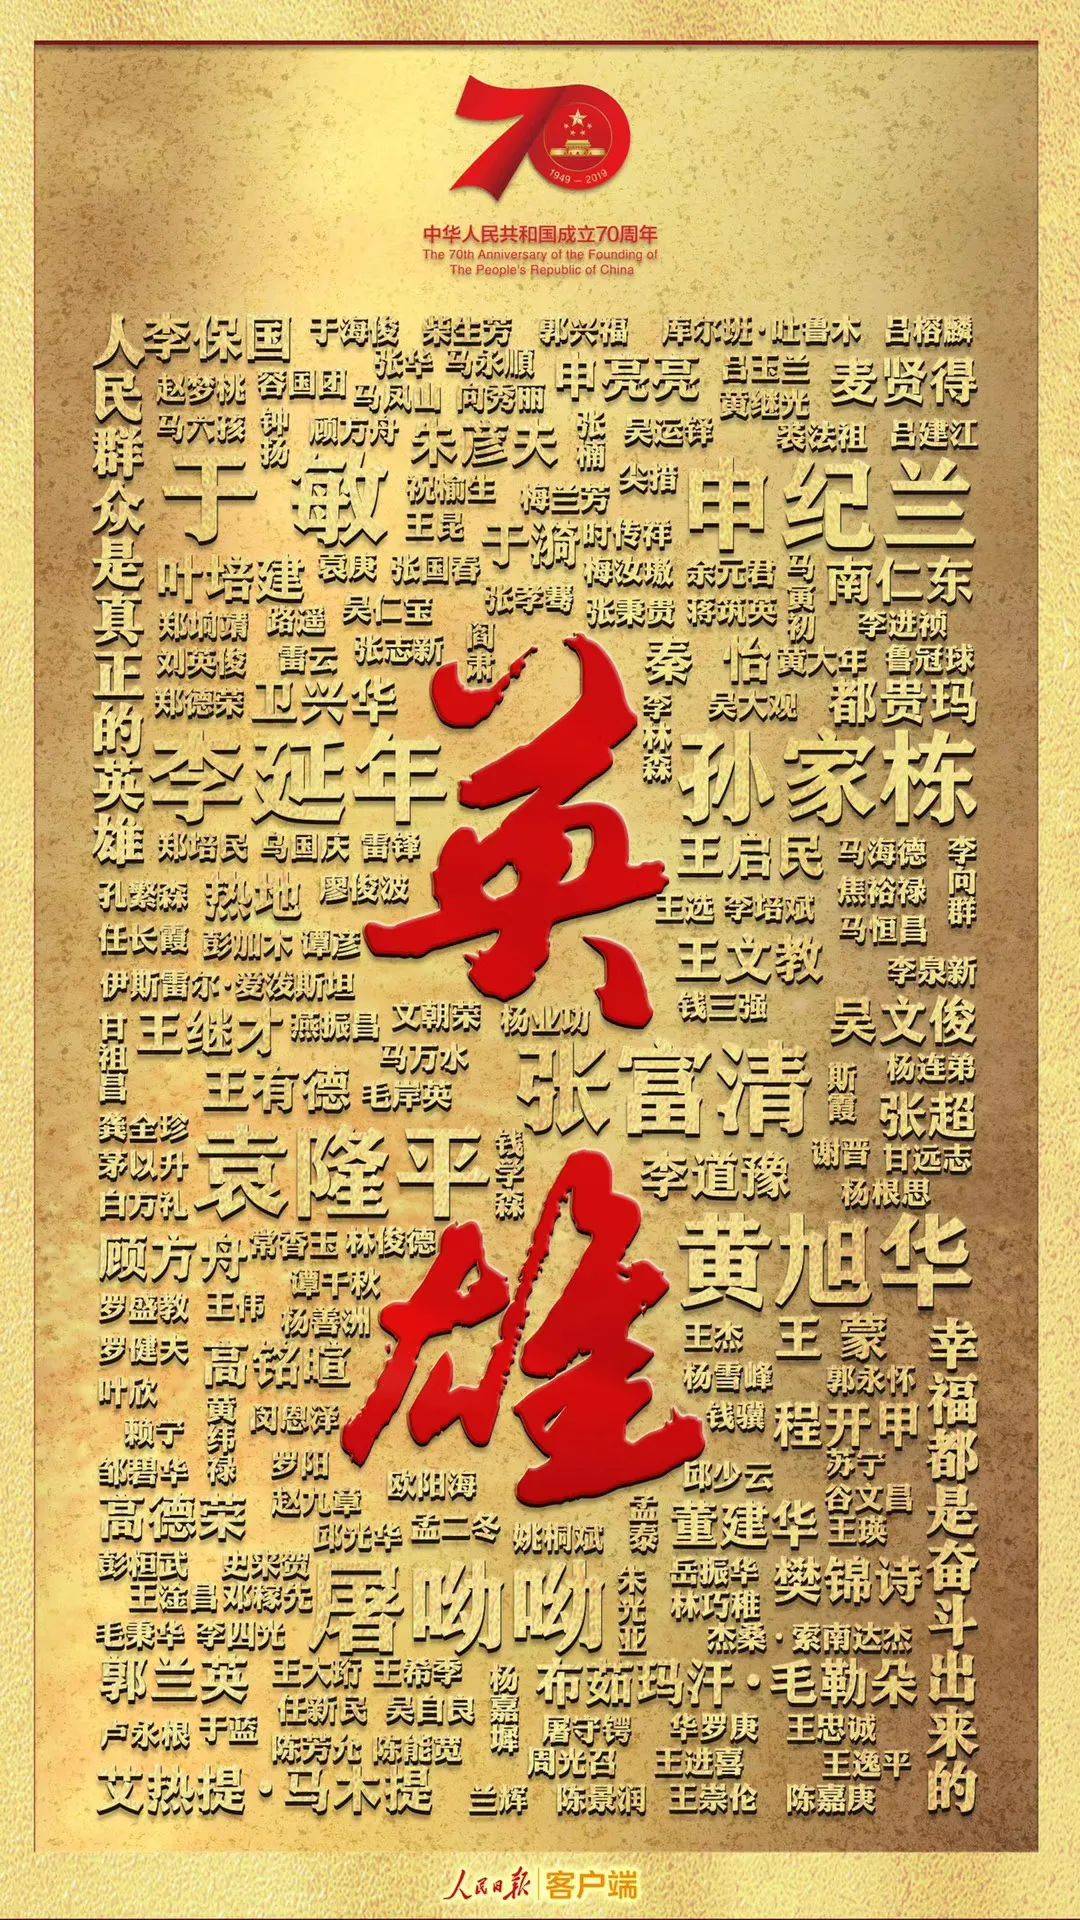 1949－2019
中华人民共和国成立70周年
The 70th Anniversary of the Founding of
The People's Republic of China
人民群众是真正的英雄
李保国 于海俊 柴生芳 郭兴福 库尔班·吐鲁木 吕榕麟
张华 马永順 申亮亮 吕玉兰 麦贤得
赵梦桃 容国团 马凤山 向秀丽 黄继光
马六孩 钟扬 顾方舟 朱彦夫 张楠 吴运铎 裴法祖 吕建江
于敏 祝榆生 梅兰芳 尖措 申纪兰
王昆 于漪 时传祥
叶培建 袁庚 张国春 梅汝璈 余元君 马寅初 南仁东
郑垧靖 路遥 吴仁宝 张孝骞 张秉贵 蒋筑英 李进祯
刘英俊 雷云 张志新 阎肃 秦怡 黄大年 鲁冠球
郑德荣 卫兴华 李林森 吴大观 都贵玛
李延年 孙家栋
郑培民 乌国庆 雷锋 王启民 马海德 李向群
孔繁森 热地 廖俊波 王选 李培斌 焦裕禄
任长霞 彭加木 谭彦 王文教 马恒昌
伊斯雷尔·爱泼斯坦 李泉新
甘祖昌 王继才 燕振昌 文朝荣 杨业功 钱三强 吴文俊
马万水 张富清 斯霞 杨连弟
王有德 毛岸英 张超
龚全珍 袁隆平 钱学森
茅以升 李道豫 谢晋 甘远志
白万礼 杨根思
顾方舟 常香玉 林俊德 黄旭华
谭千秋
罗盛教 王伟 杨善洲 王杰 王蒙
罗健夫 高铭暄 杨雪峰 郭永怀
叶欣 黄纬禄 闵恩泽 钱骥 程开甲
赖宁
邹碧华 罗阳 欧阳海 邱少云 苏宁
高德荣 赵九章 孟泰 董建华 谷文昌
邱光华 孟二冬 姚桐斌 王瑛
彭桓武 史来贺 屠呦呦 朱光亚 岳振华 樊锦诗
王淦昌 邓稼先 林巧稚
毛秉华 李四光 杰桑·索南达杰
郭兰英 王大珩 王希季 杨嘉墀 布茹玛汗·毛勒朵
任新民 吴自良
卢永根 于蓝 屠守锷 华罗庚 王忠诚
陈芳允 陈能宽 周光召 王进喜 王逸平
艾热提·马木提 兰辉 陈景润 王崇伦 陈嘉庚
英雄
幸福都是奋斗出来的
人民日报 客户端